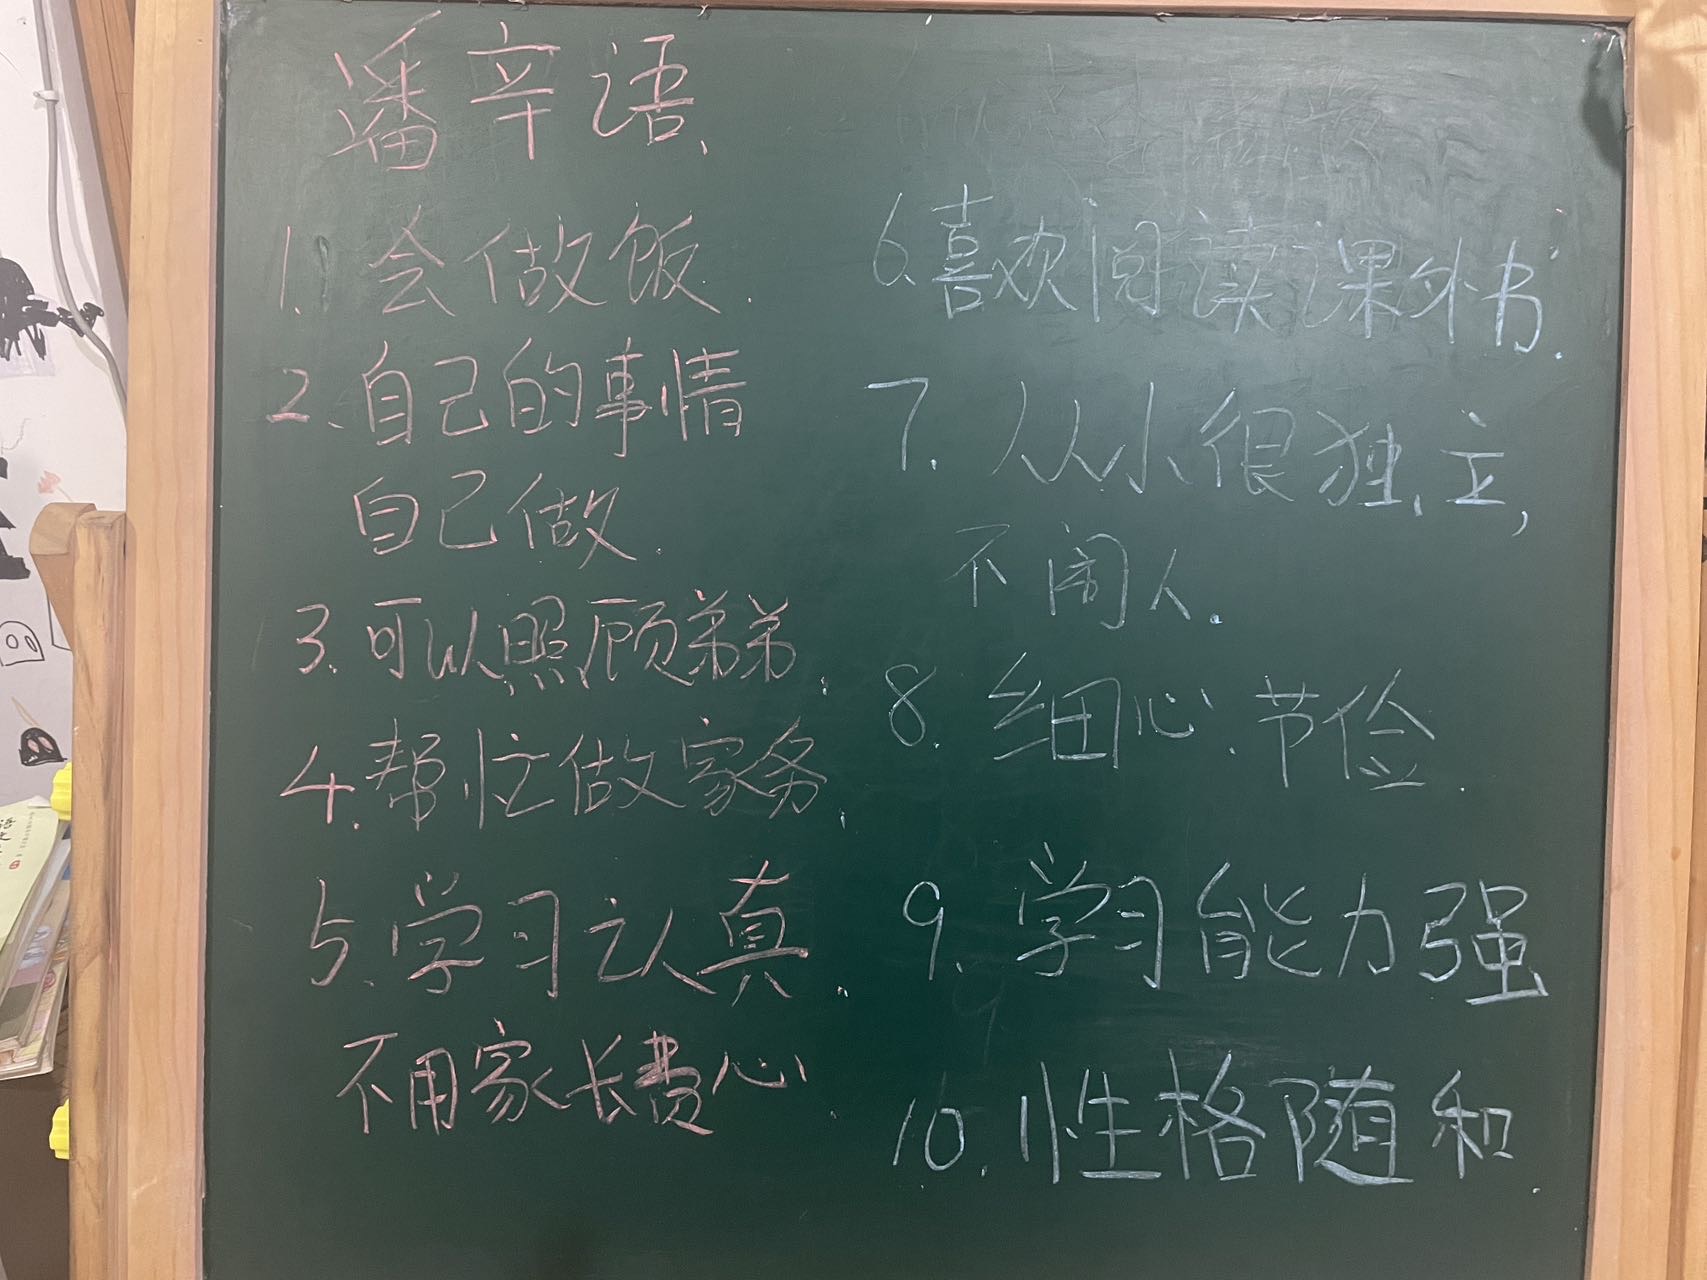 潘辛语
1. 会做饭.
2、自己的事情
自己做.
3. 可以照顾弟弟.
4. 帮忙做家务.
5. 学习认真.
不用家长费心.
6. 喜欢阅读课外书.
7. 从小很独立,
不闹人.
8. 细心.节俭.
9. 学习能力强
10. 性格随和.